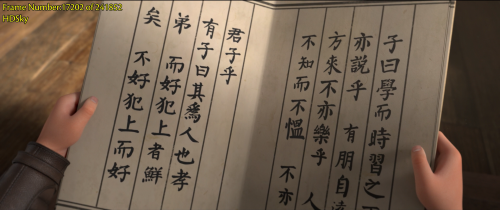 Frame Number:17202 of 241842
HDSky
子曰學而時習之不
亦說乎 有朋自遠
方來不亦樂乎 人
不知而不慍 不亦
君子乎
有子曰其爲人也孝
弟 而好犯上者鮮
矣 不好犯上而好